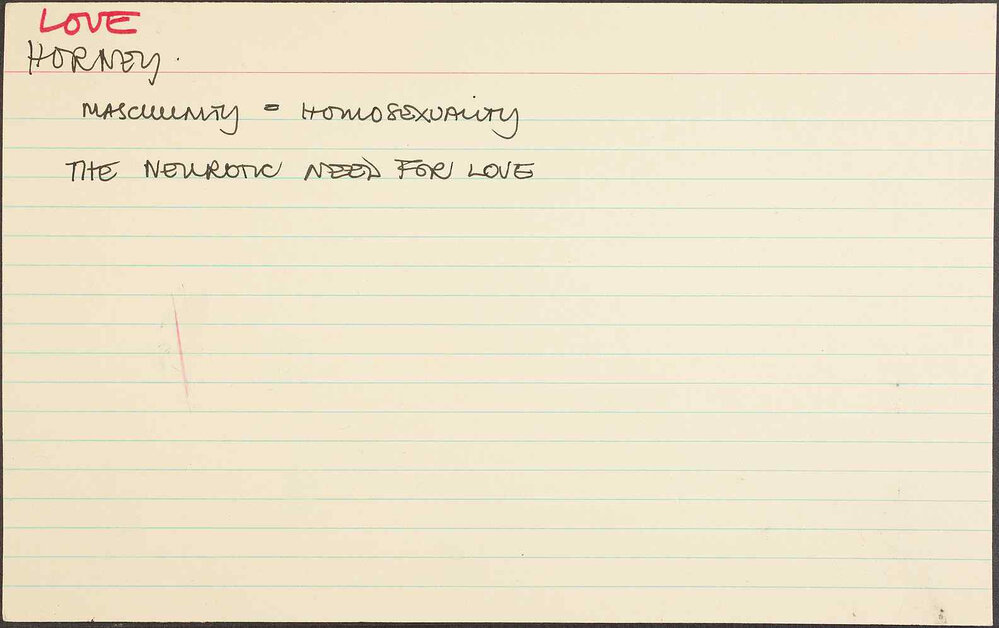 LOVE
HORNEY.
MASCULINITY = HOMOSEXUALITY
THE NEUROTIC NEED FOR LOVE